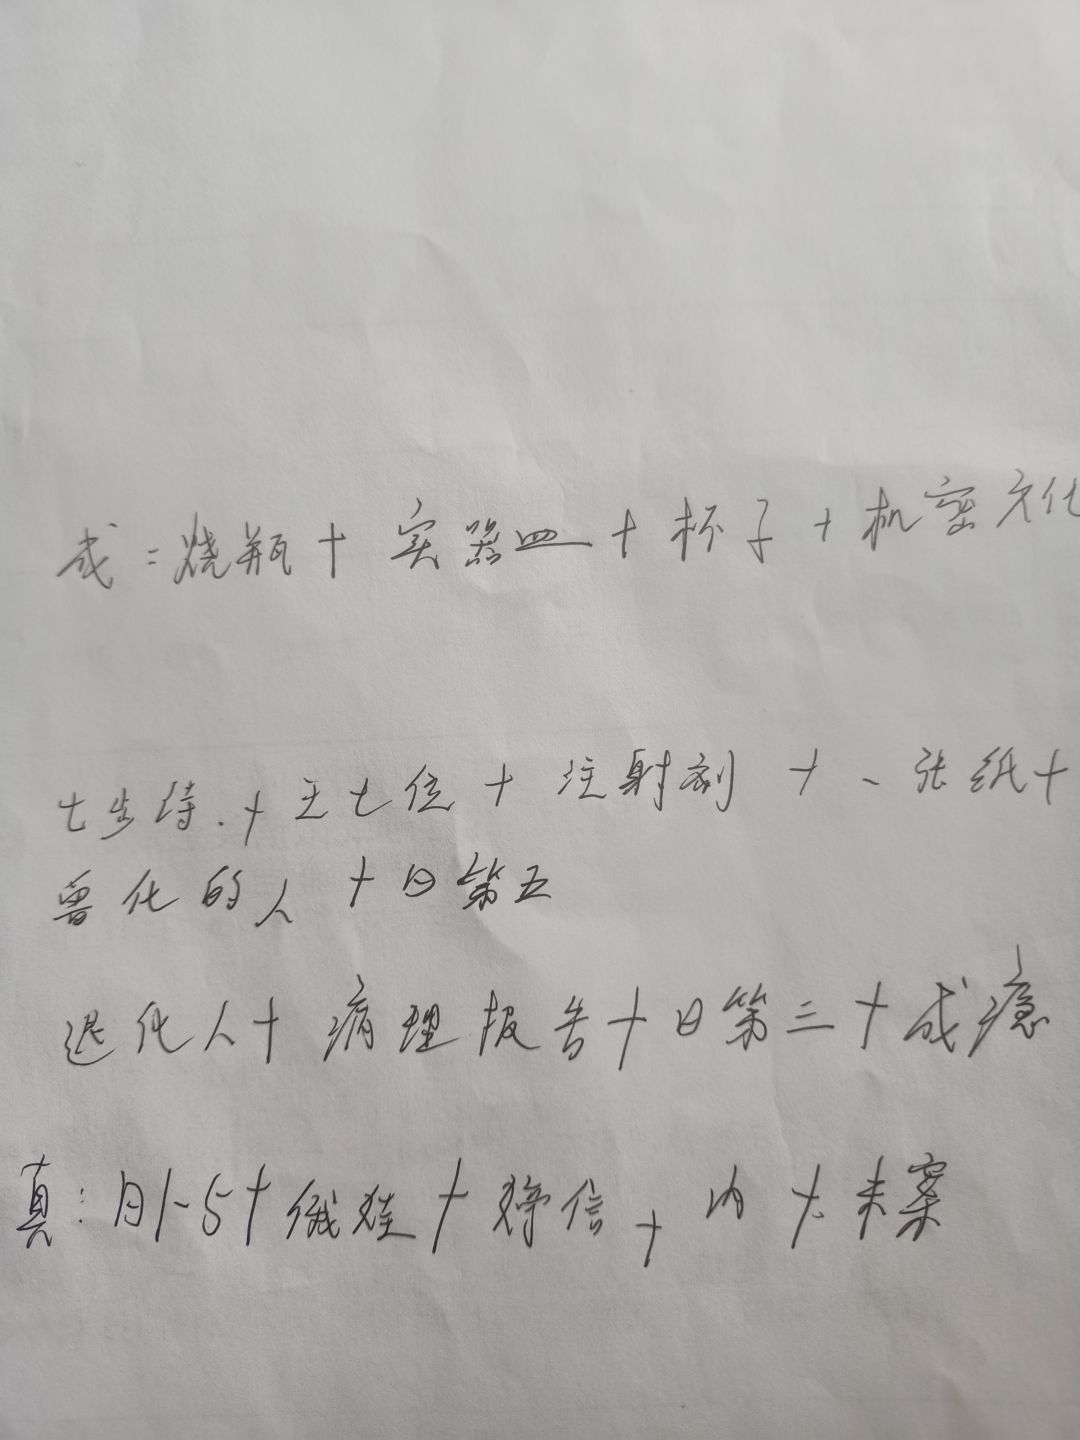 式:烧瓶+实器皿+杯子+机密文化
七步诗.+王七位+注射剂+、张纸+
兽化的人+日第五
退化人+病理报告+日第三+成瘾
真:日1-5+俄娃+信+内+未案